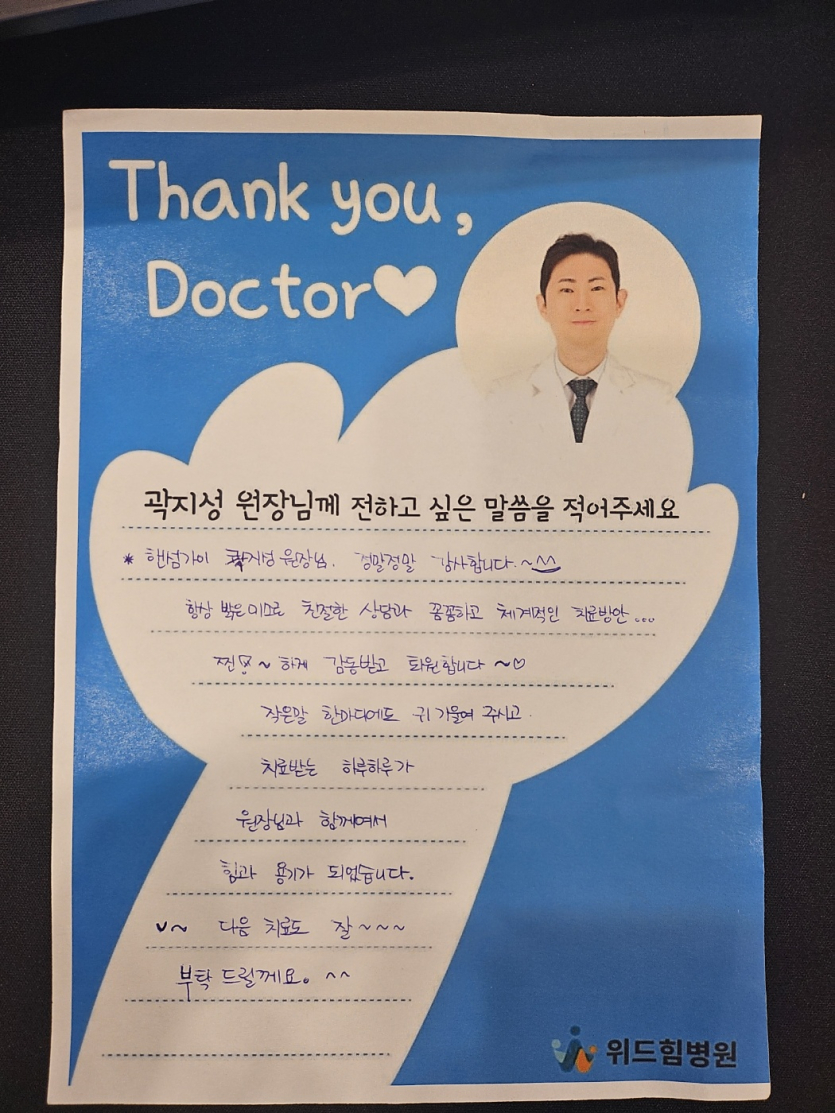 Thank you,
Doctor♥
곽지성 원장님께 전하고 싶은 말씀을 적어주세요
* 핸섬가이 곽지성 원장님. 정말정말 감사합니다.~^^
항상 밝은미소로 친절한 상담과 꼼꼼하고 체계적인 치료방안...
찐~하게 감동받고 퇴원합니다~♡
작은말 한마디에도 귀기울여 주시고.
치료받는 하루하루가
원장님과 함께여서
힘과 용기가 되었습니다.
v~ 다음 치료도 잘~~~
부탁드릴께요。^^
위드힘병원